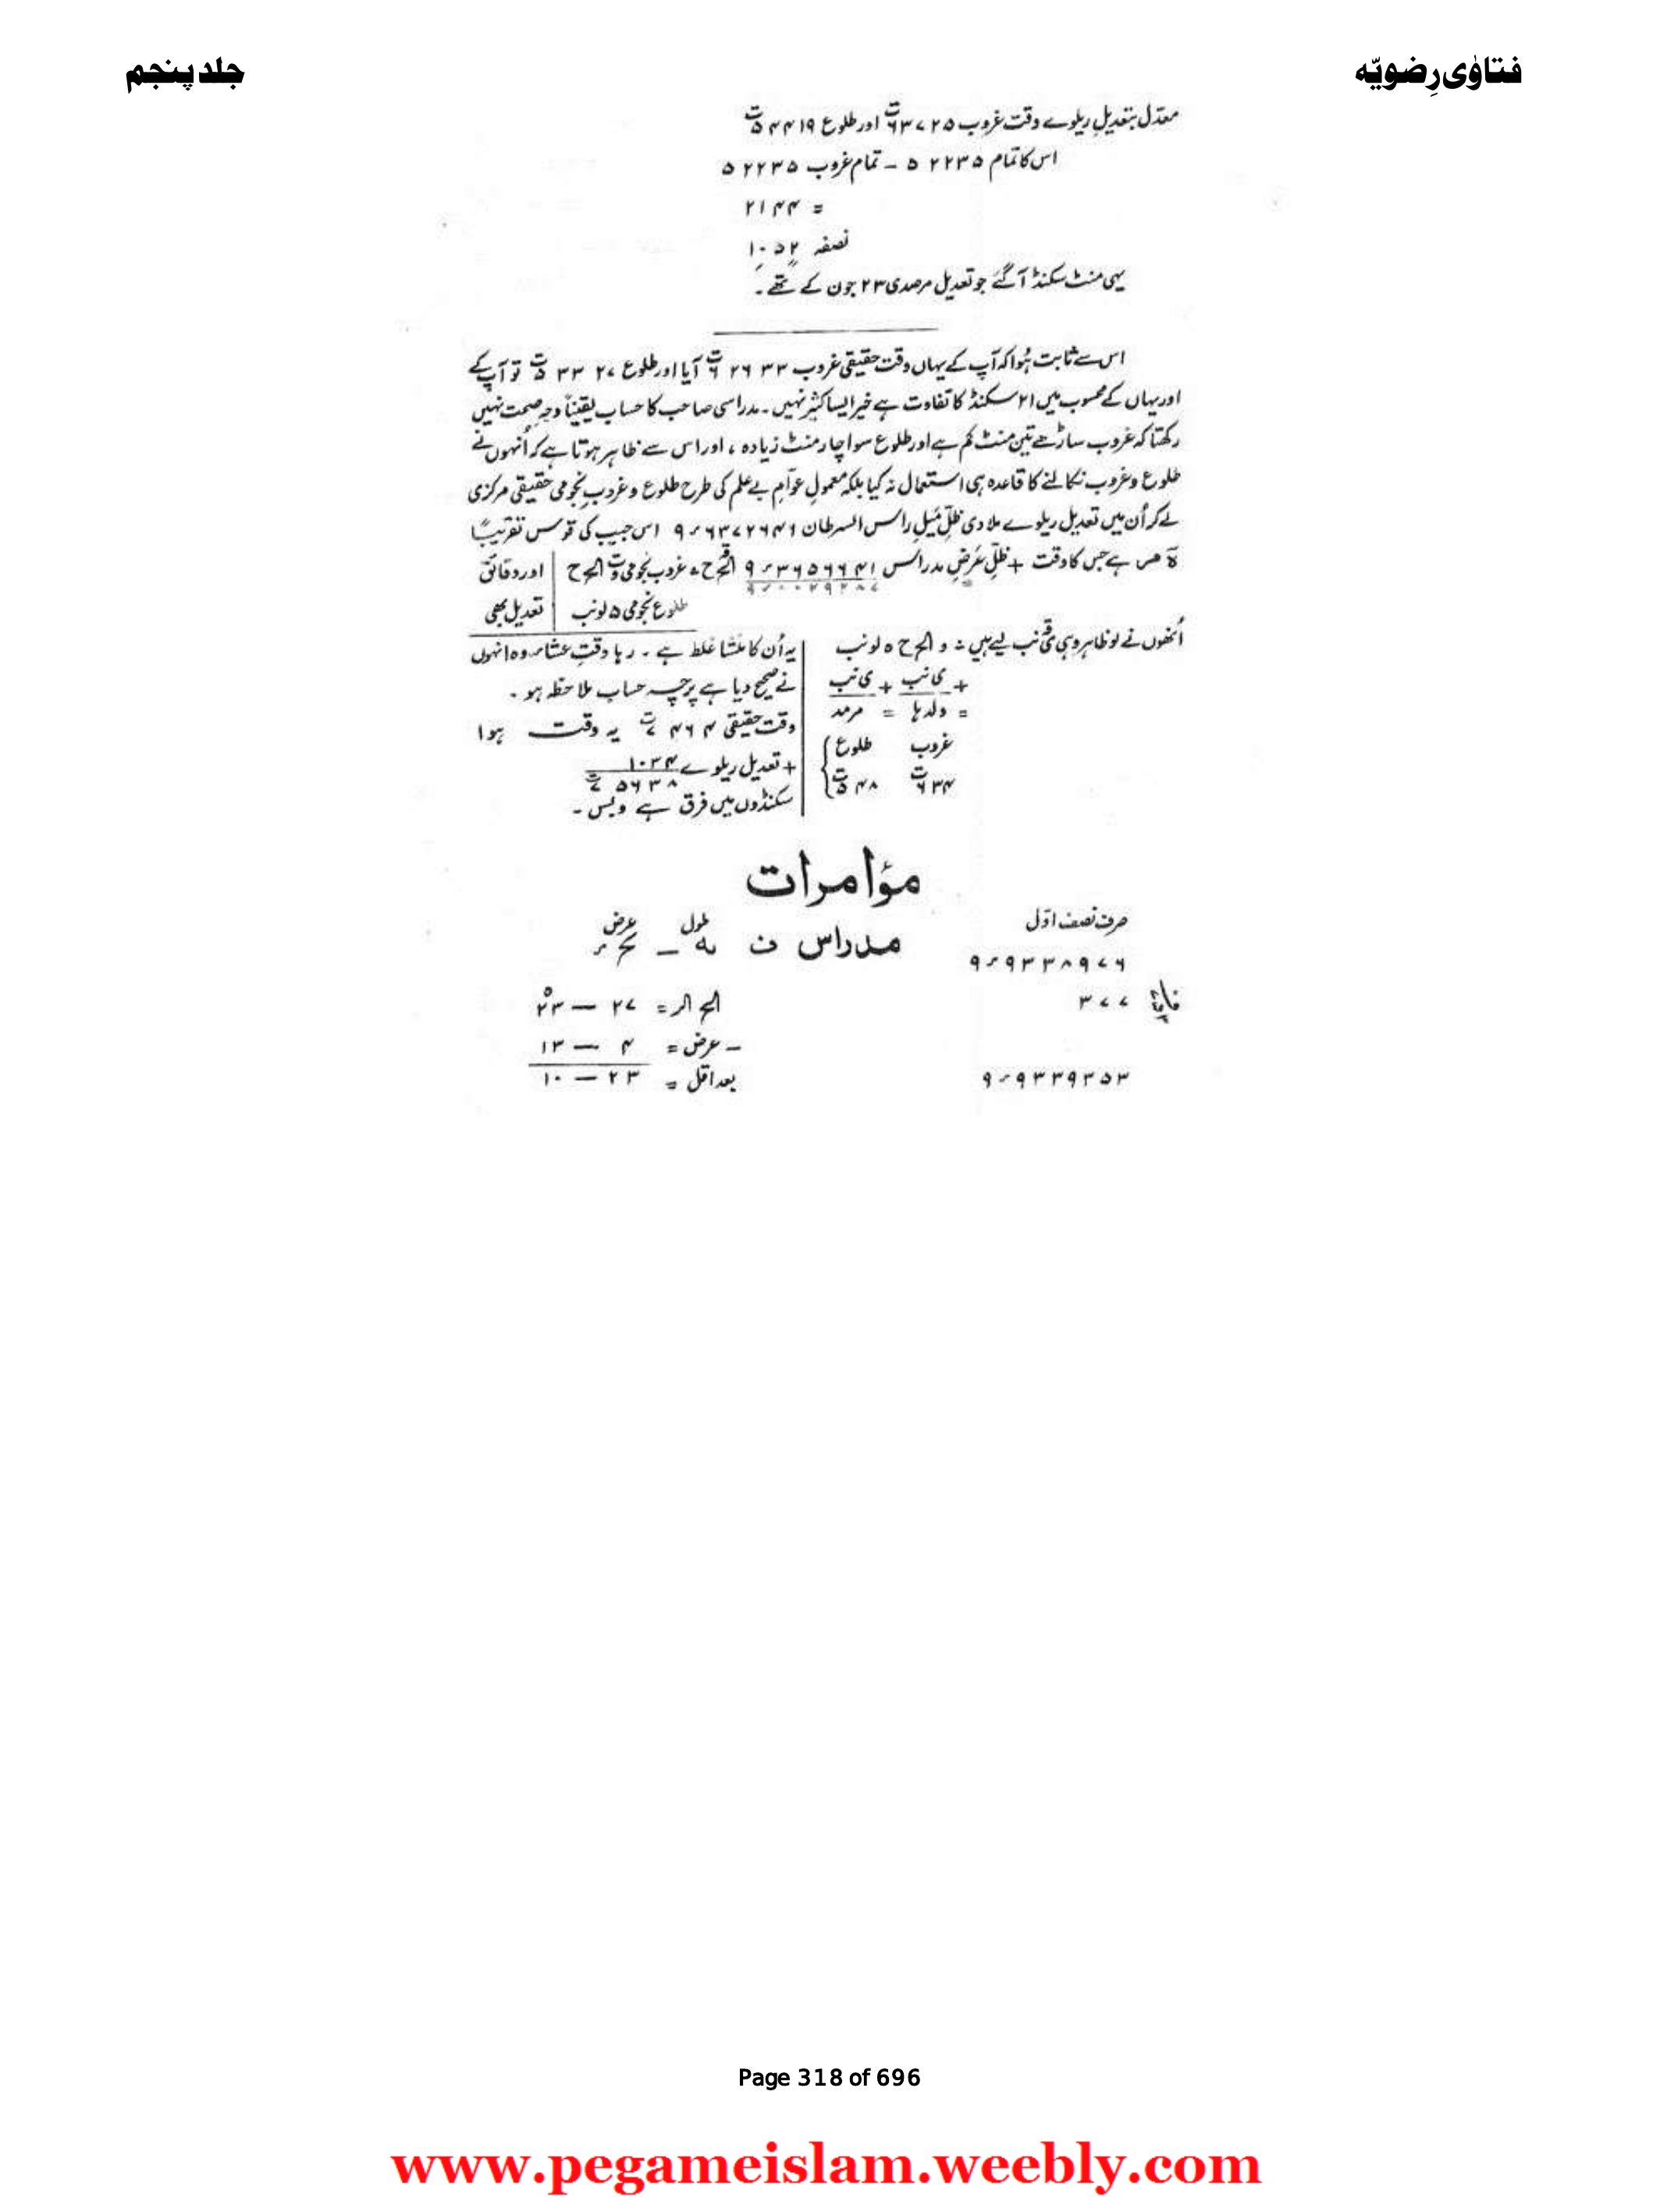 فتاوٰی رِضویّہ
جلد پنجم
معدّل بتعدیلِ ریلوے وقت غروب ۶۳۷۲۵ت اور طلوع ۵۴۴۱۹ت
اس کا تمام ۵۲۲۳۵ ـ تمام غروب ۵۲۲۳۵
= ۲۱۴۴
نصفہ ۱۰۵۲
یہی منٹ سکنڈ آگئے جو تعدیل مرصدی ۲۳ جون کے تھے۔
اس سے ثابت ہُوا کہ آپ کے یہاں وقت حقیقی غروب ۳۳ ۲۶ ۶ت آیا اور طلوع ۲۷ ۳۳ ۵ت تو آپ کے
اور یہاں کے محسوب میں ۲۱ سکنڈ کا تفاوت ہے خیر ایسا کثیر نہیں۔ مدراسی صاحب کا حساب یقیناً وجہِ صحت نہیں
رکھتا کہ غروب ساڑھے تین منٹ کم ہے اور طلوع سوا چار منٹ زیادہ، اور اس سے ظاہر ہوتا ہے کہ اُنہوں نے
طلوع وغروب نکالنے کا قاعدہ ہی استعمال نہ کیا بلکہ معمولِ عوامِ بے علم کی طرح طلوع وغروبِ نجومی حقیقی مرکزی
لے کر اُن میں تعدیل ریلوے ملا دی ظلِّ مَیلِ راس السرطان ۹ء۶۳۷۲۶۴۶ اس جیب کی قوس تقریبًا
ہے جس کا وقت + ظلِّ عَرضِ مدراس ۹ء۳۶۵۶۶۴۱ غروب نجومی اور دقائق
طلوع نجومی ۵ لونب تعدیل بھی
اُنھوں نے لو ظاہر وہی ی نب لیے ہیں و الح ح ۵ لونب
+ ی نب + ی نب
غروب طلوع
۶۳۴ت ۵۴۸ت
یہ اُن کا منشا غلط ہے۔ رہا وقتِ عشاء وہ انہوں
نے صحیح دیا ہے پرچہ حساب ملاحظہ ہو۔
وقت حقیقی ۴۶۴ ۷ت یہ وقت ہوا
+ تعدیل ریلوے ۱۰۳۴
۷ت ۵۶۳۸
سکنڈوں میں فرق ہے وبس۔
مؤامرات
صرف نصف اوّل
طول عرض
مدراس ف
۹ء۹۳۳۸۹۷۶
۳۷۷
۹ء۹۳۳۹۳۵۳
= ۲۷ — ۲۳
ـ عرض = ۴ — ۱۳
بعد اقل = ۲۳ — ۱۰
Page 318 of 696
www.pegameislam.weebly.com